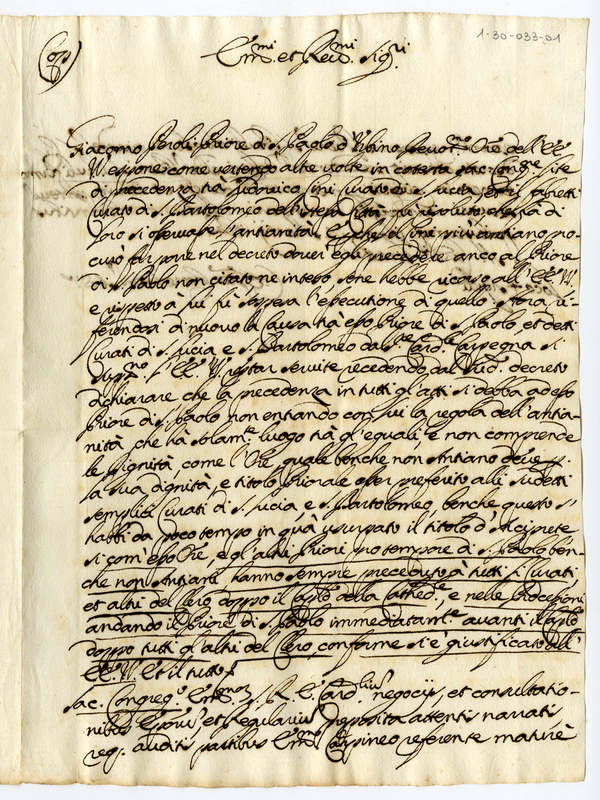 1-30-033-01
Em.mi et Rev.mi Sig.ri
Giacomo Peroli Priore di S. Paolo d'Urbino devot.mo Ore dell'EE
VV. espone come vertendo altre volte in cotesta Sac. Cong.ne lite
di precedenza trà Ludovico curato di S. Lucia, et il
Curato di S. Bartolomeo dell'istessa Città fù risoluto che trà di
loro si osservasse l'antianità, e perche il più antiano pro-
curò far porre nel decreto dover egli precedere anco al Priore
di S. Paolo non citato ne inteso, se ne hebbe ricorso all'EE. VV.
e rispetto a lui fù sospesa l'essecutione di quello. Hora ri-
ferendosi di nuovo la causa trà esso Priore di S. Paolo, et detti
Curati di S. Lucia e S. Bartolomeo dal Sr. Card.le Carpegna si
supp.no l'EE. VV. restar servite recedendo dal sud.o decreto
dichiarare che la precedenza in tutti gl'atti si debba ad esso
Priore di S. Paolo non entrando con lui la regola dell'antia-
nità, che hà solam.te luogo trà gl'eguali e non comprende
le Dignità, come l'Ore, quale benche non Antiano deve p.
la sua dignità, e titolo Priorale esser preferito alli sudetti
semplici Curati di S. Lucia e S. Bartolomeo, benche questo s'
habbi da poco tempo in quà usurpato il titolo d'Arciprete
si com'esso Ore, e gl'altri Priori pro tempore di S. Paolo ben-
che non Antiani hanno sempre preceduto à tutti i Curati,
et altri del Clero doppo il Cap.lo della Cathed.le, e nelle Processioni
andando il Priore di S. Paolo immediatam.te avanti il Cap.lo
doppo tutti gl'altri del Clero, conforme si è giustificato all'
EE. VV. Et il tutto
Sac. Congreg.o Em.mor. S. R. E. Card.lium negocijs, et consultatio-
nibus Epōrum, et Regularium preposita attentis narratis
reg. auditis partibus Em.mo Carpineo referente maturè